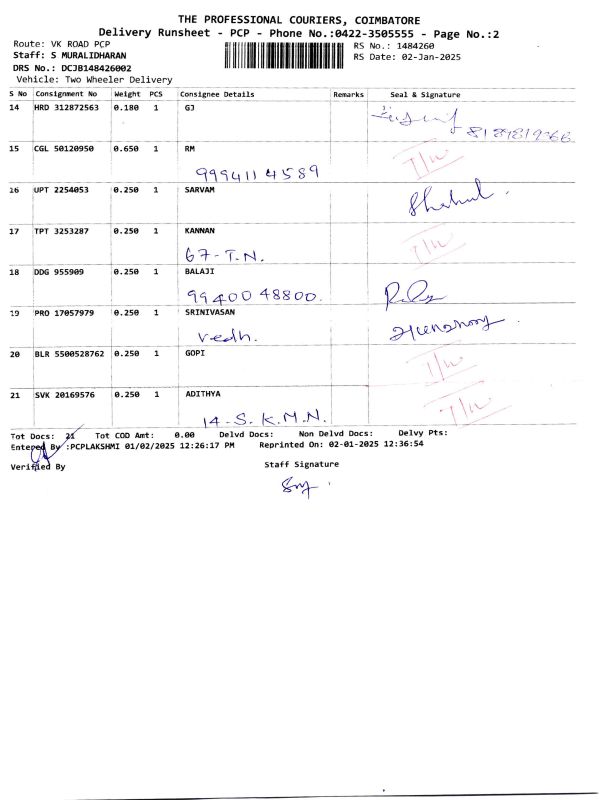 THE PROFESSIONAL COURIERS, COIMBATORE
Delivery Runsheet - PCP - Phone No.:0422-3505555 - Page No.:2
Route: VK ROAD PCP
RS No.: 1484260
Staff: S MURALIDHARAN
RS Date: 02-Jan-2025
DRS No.: DCJB148426002
Vehicle: Two Wheeler Delivery
S No Consignment No Weight PCS Consignee Details Remarks Seal & Signature
14 HRD 312872563 0.180 1 GJ
15 CGL 50120950 0.650 1 RM T/W
9994114589
16 UPT 2254053 0.250 1 SARVAM
Shahul.
17 TPT 3253287 0.250 1 KANNAN T/W
67-T.N.
18 DDG 955909 0.250 1 BALAJI
99400 48800.
19 PRO 17057979 0.250 1 SRINIVASAN
Vedh.
20 BLR 5500528762 0.250 1 GOPI T/W
21 SVK 20169576 0.250 1 ADITHYA T/W
14-S.K.M.N.
Tot Docs: 21 Tot COD Amt: 0.00 Delvd Docs: Non Delvd Docs: Delvy Pts:
Entered By :PCPLAKSHMI 01/02/2025 12:26:17 PM Reprinted On: 02-01-2025 12:36:54
Verified By Staff Signature